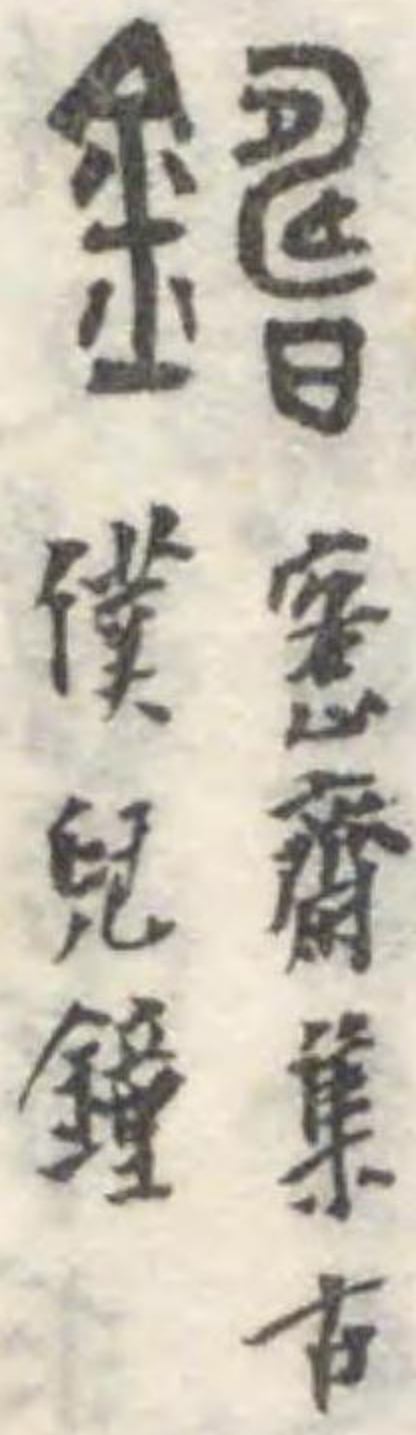 愙齋集古
金 僕兒鐘